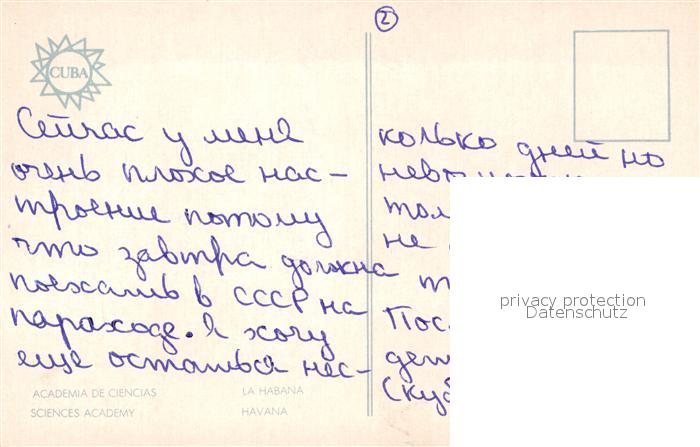 2
CUBA
Сейчас у мене
очень плохое нас-
троение потому
что завтра должна
поехать в СССР на
параходе. Я хочу
еще остаться нес-
колько дней но
не
Пос
ACADEMIA DE CIENCIAS
SCIENCES ACADEMY
LA HABANA
HAVANA
privacy protection
Datenschutz